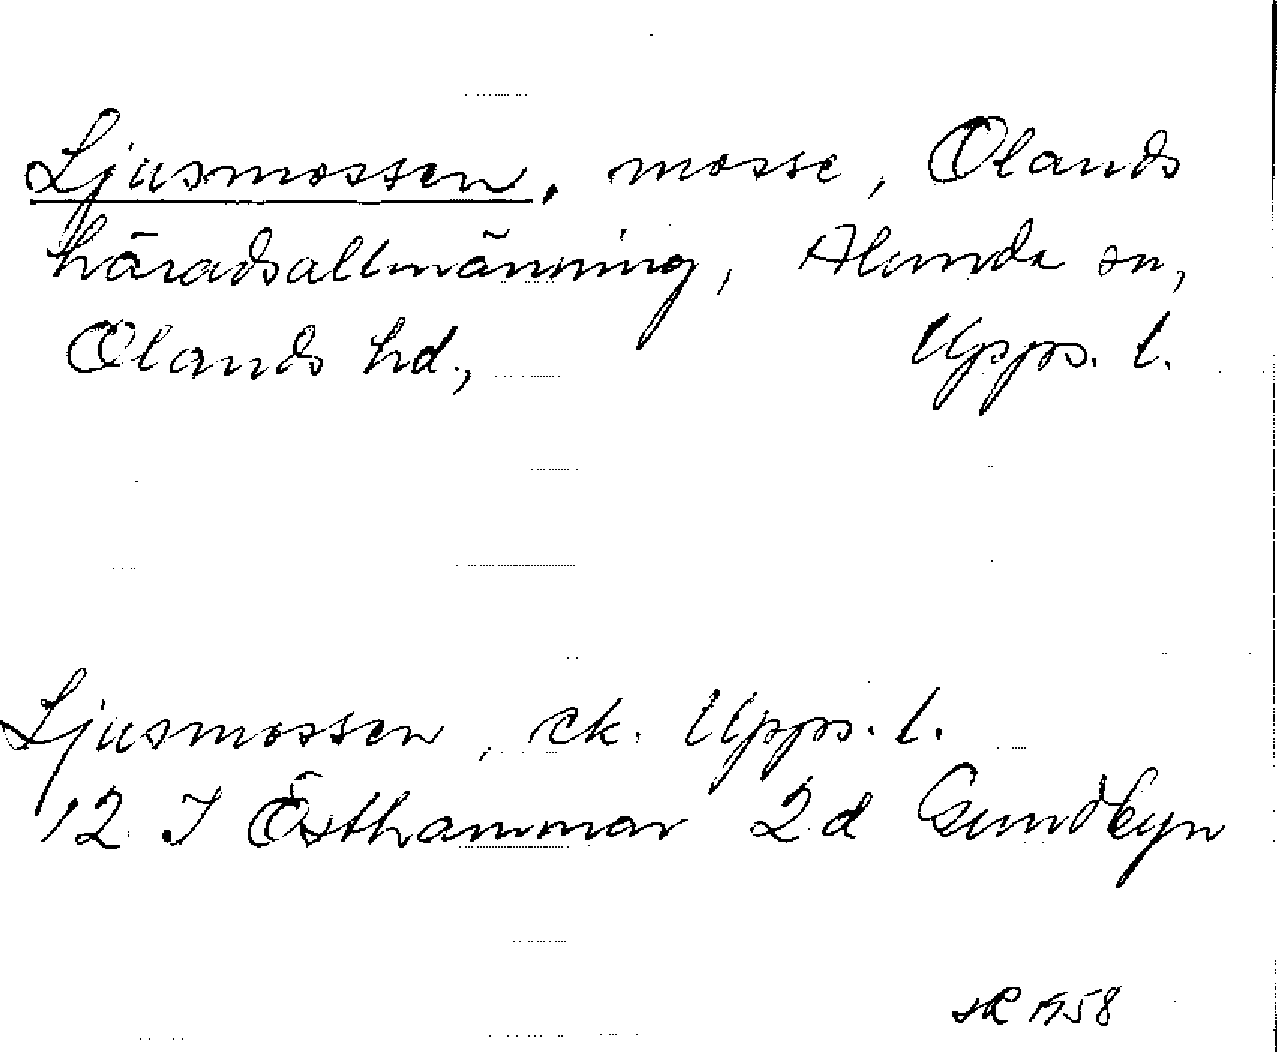 Ljusmossen, mosse, Olands
häradsallmänning, Alunda sn,
Olands hd., Upps. l.
Ljusmossen, ek. Upps. l.
12 I Östhammar 2d Sundbyn
1958